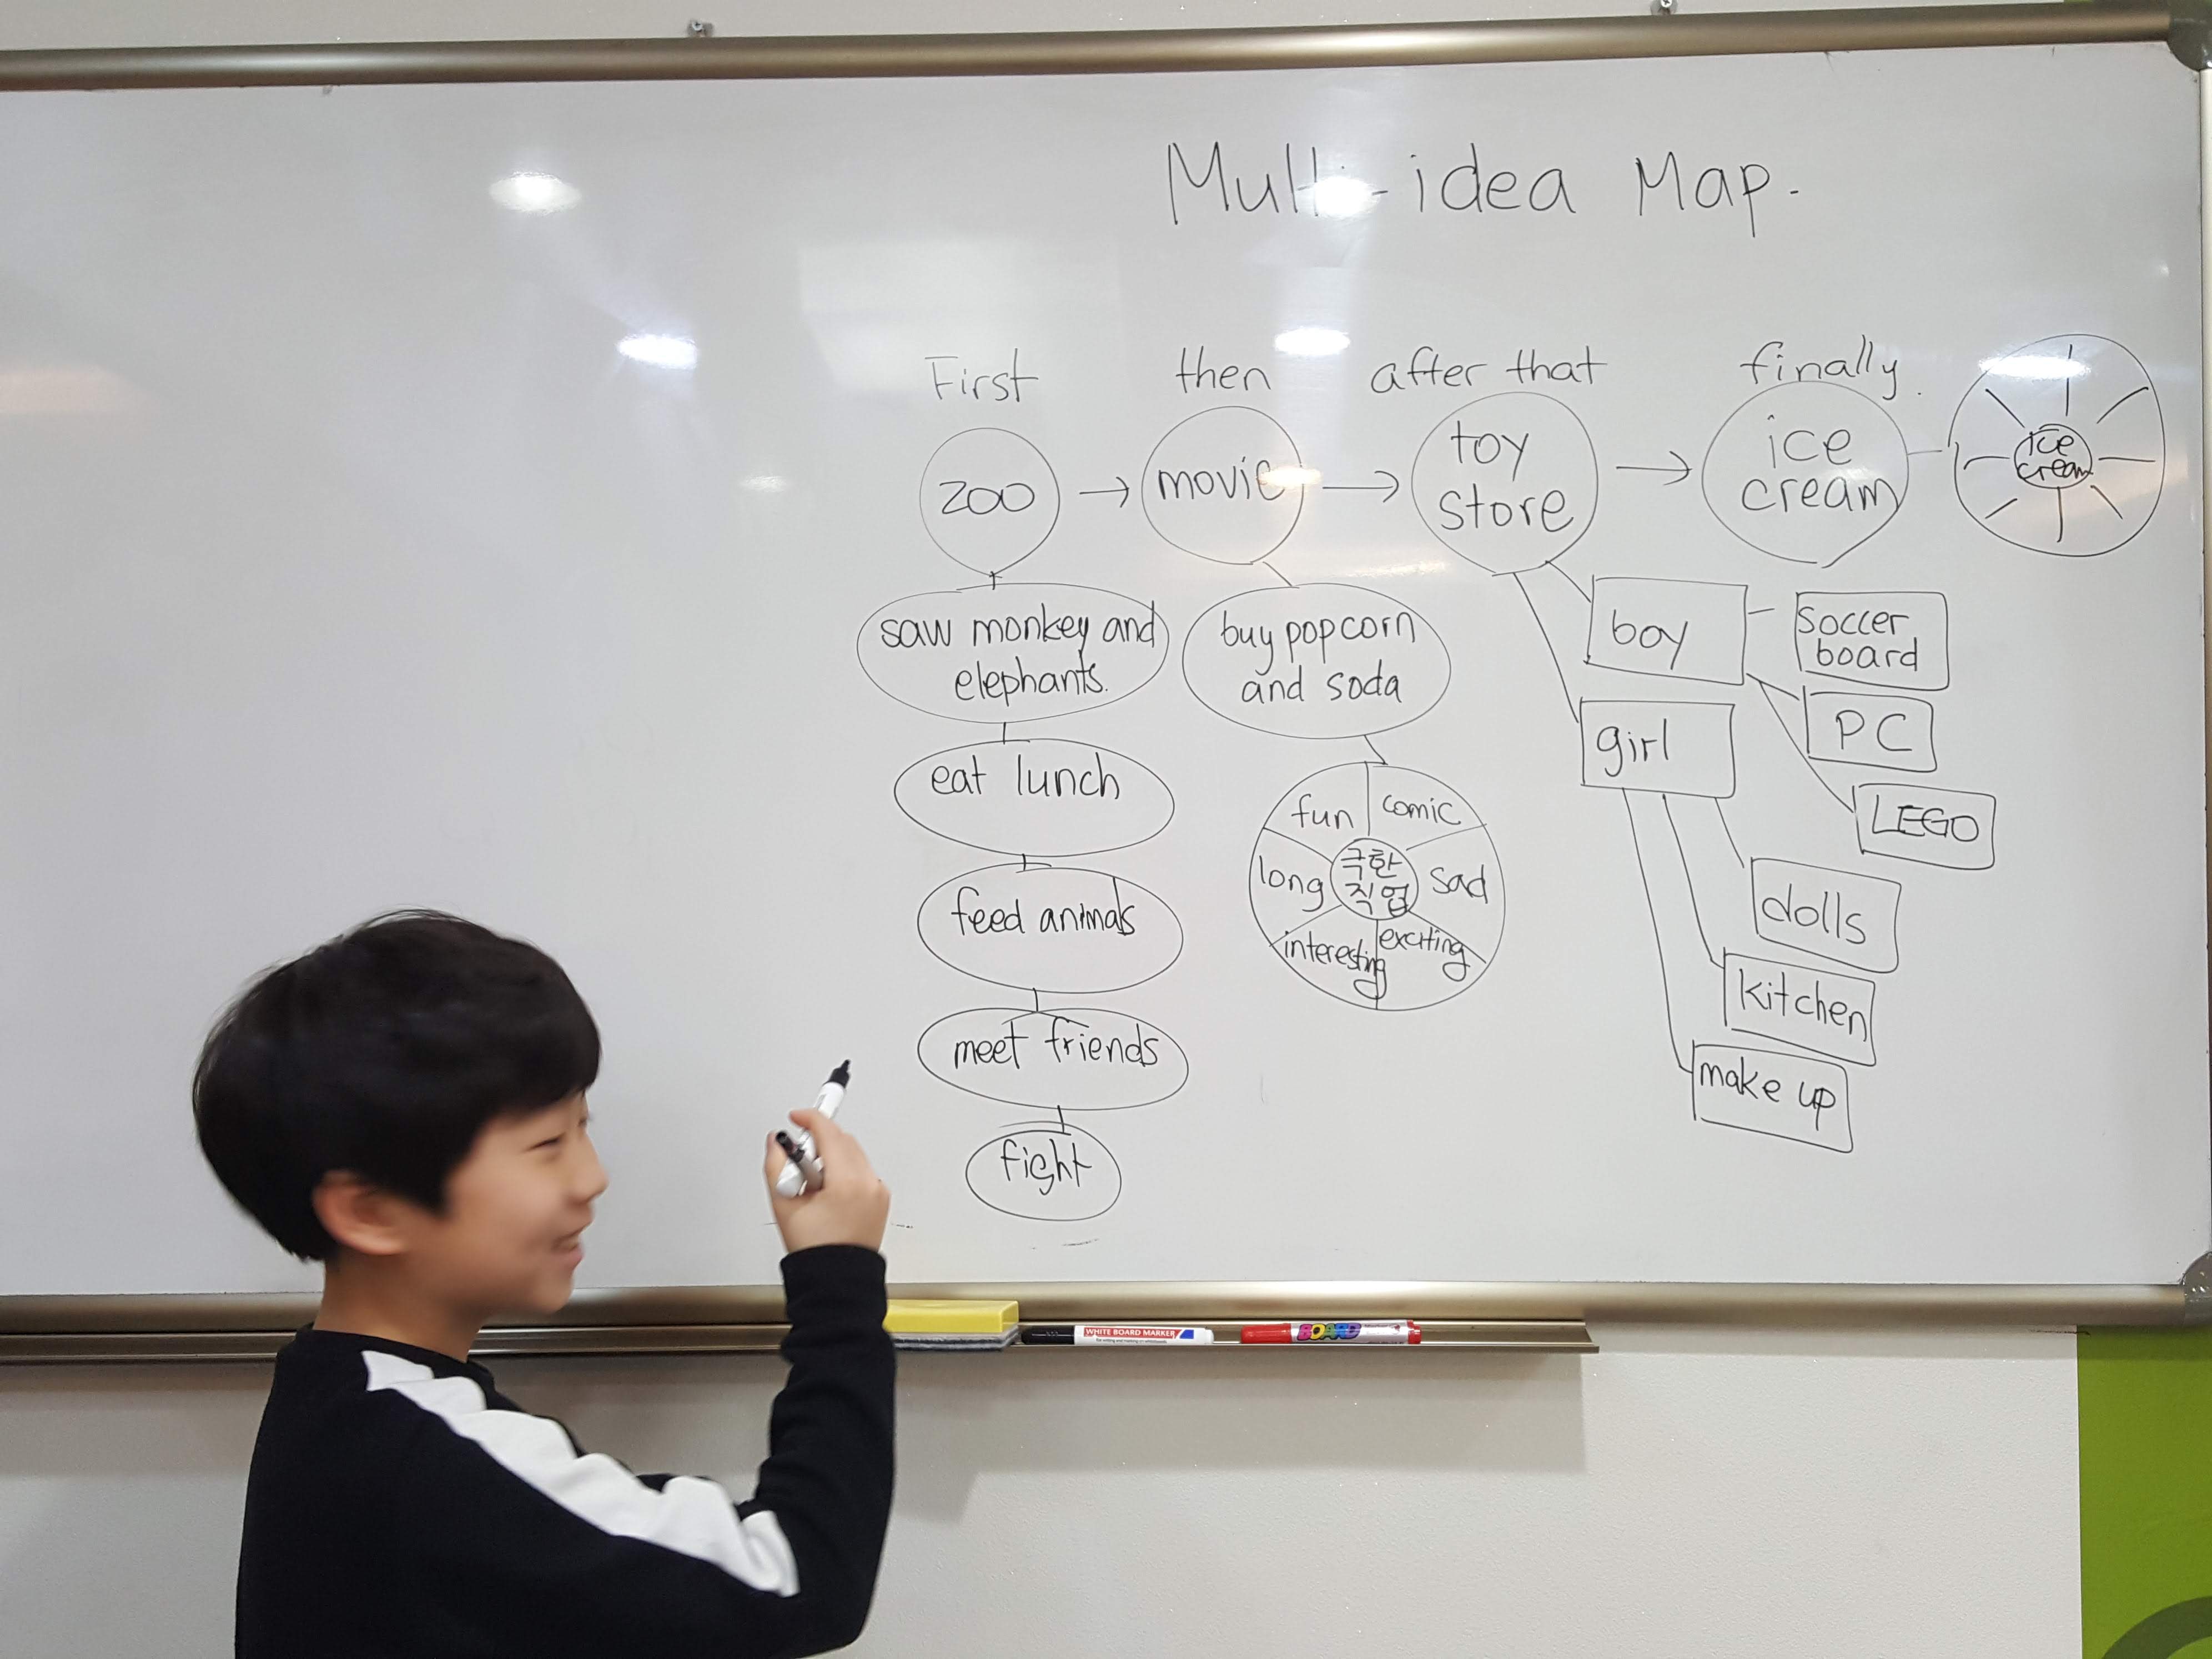 Multi-idea Map.
First
then
after that
finally.
zoo
movie
toy
store
ice
cream
ice
cream
saw monkey and
elephants.
eat lunch
feed animals
meet friends
fight
buy popcorn
and soda
fun
comic
long
극한
직업
sad
interesting
exciting
boy
soccer
board
PC
LEGO
girl
dolls
kitchen
make up
WHITE BOARD MARKER
BOARD